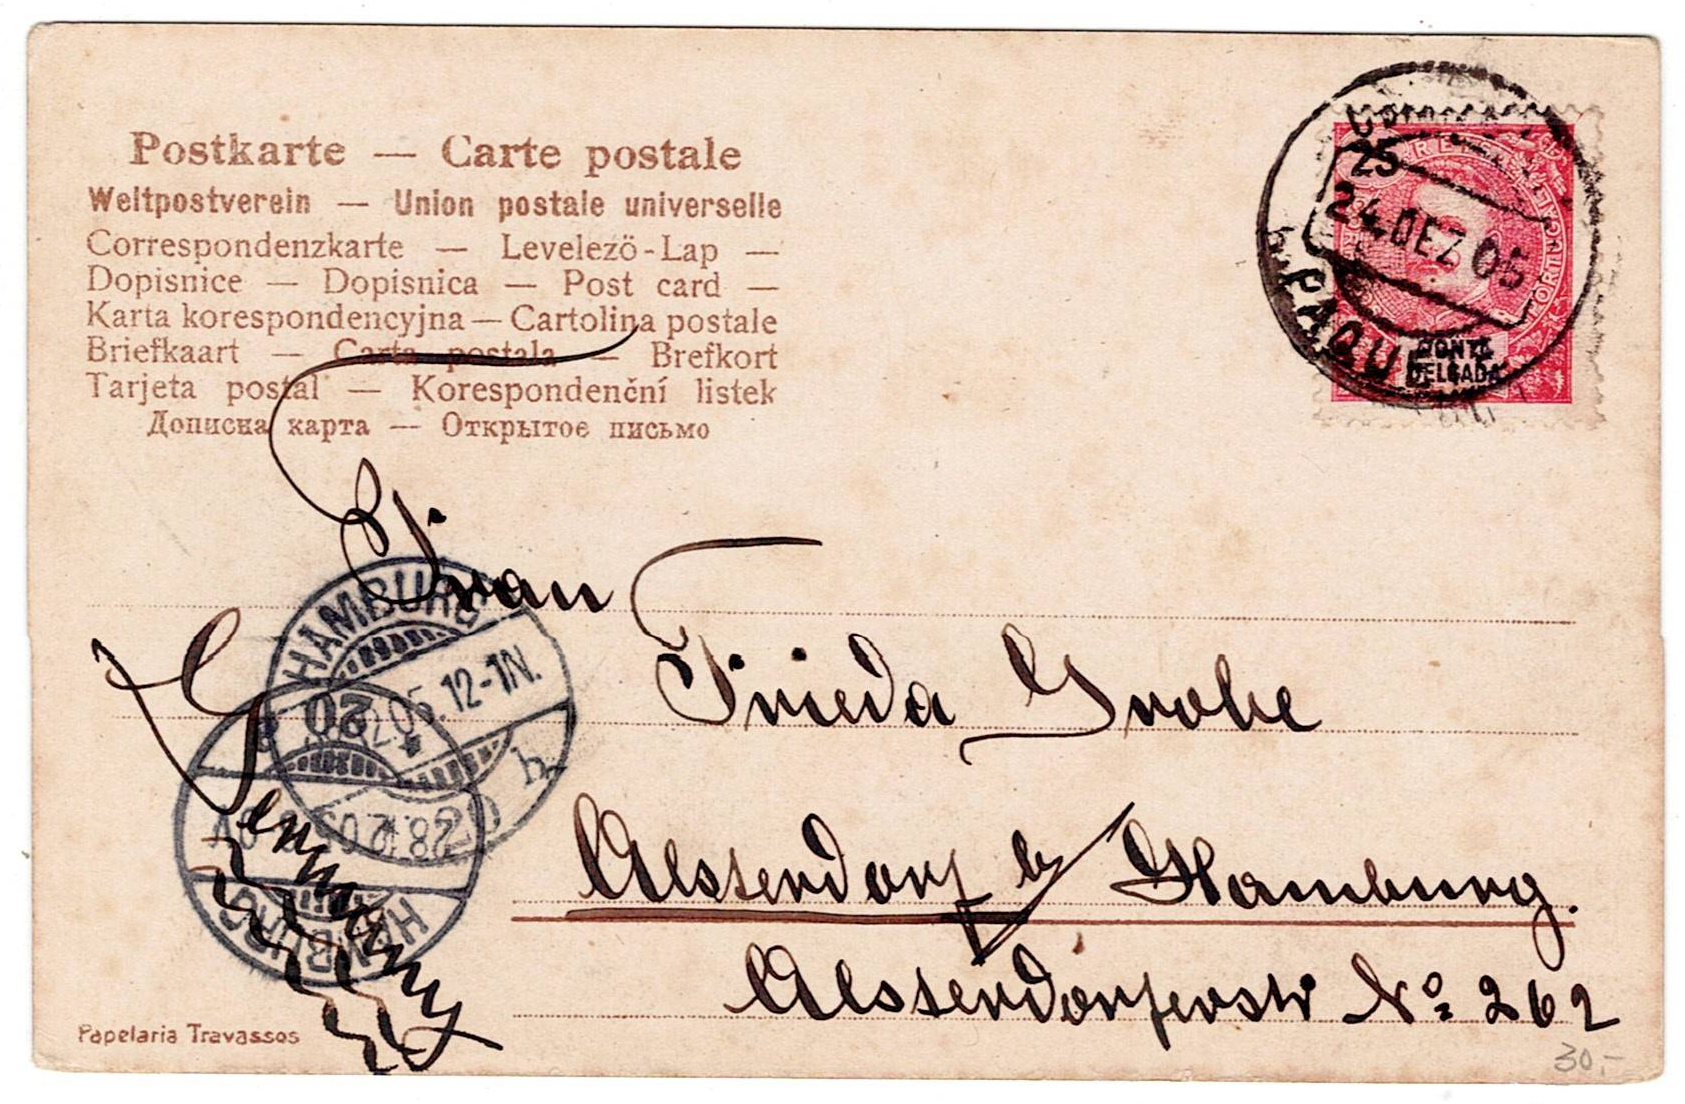 Postkarte — Carte postale
Weltpostverein — Union postale universelle
Correspondenzkarte — Levelező-Lap —
Dopisnice — Dopisnica — Post card —
Karta korespondencyjna — Cartolina postale
Briefkaart — Carta postala — Brefkort
Tarjeta postal — Korespondenční listek
Дописна карта — Открытое письмо
25
24 DEZ 05
PAQUE
PONTA
DELGADA
Frau
Frieda Grobe
Alsterdorf b/ Hamburg.
Alsterdorferstr No 262
Germany
HAMBURG
12-1N.
h
HAMBURG
28.12.05
Papelaria Travassos
30.-